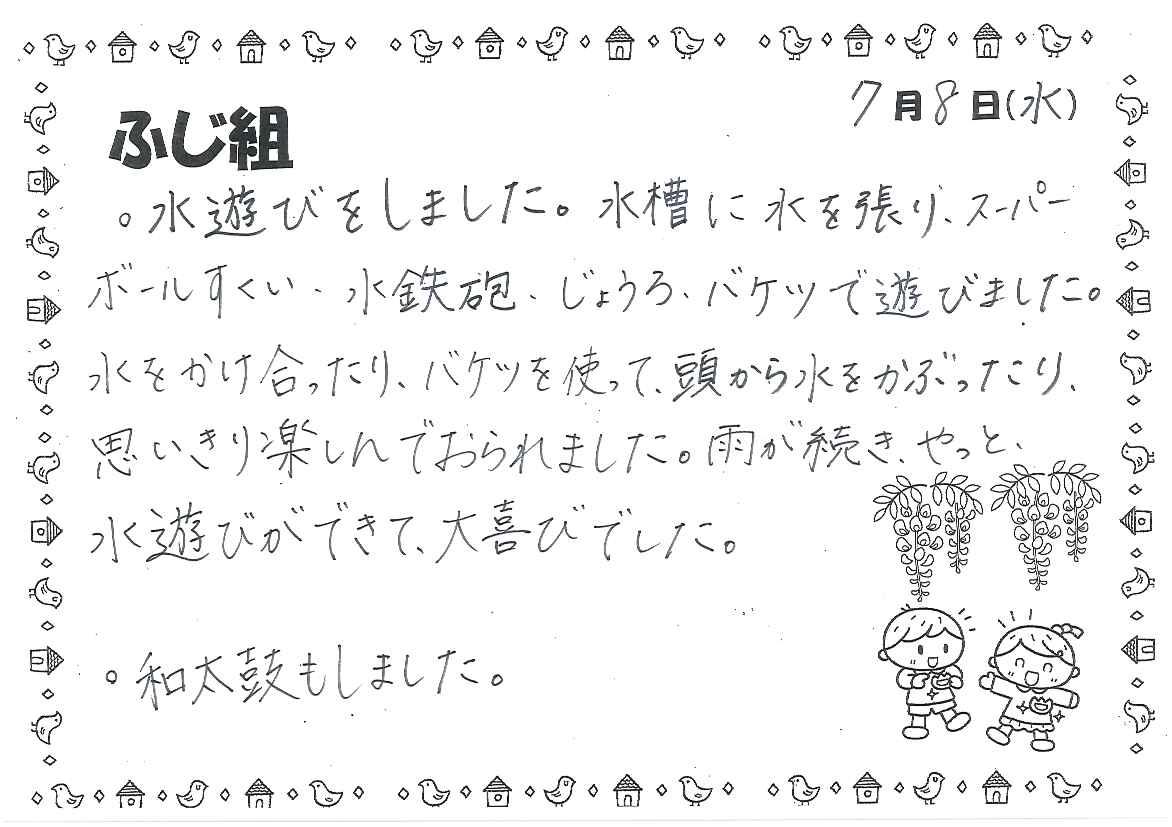 7月8日(水)
ふじ組
。水遊びをしました。水槽に水を張り、スーパー
ボールすくい、水鉄砲、じょうろ、バケツで遊びました。
水をかけ合ったり、バケツを使って、頭から水をかぶったり、
思いきり楽しんでおられました。雨が続き、やっと、
水遊びができて、大喜びでした。
。和太鼓もしました。